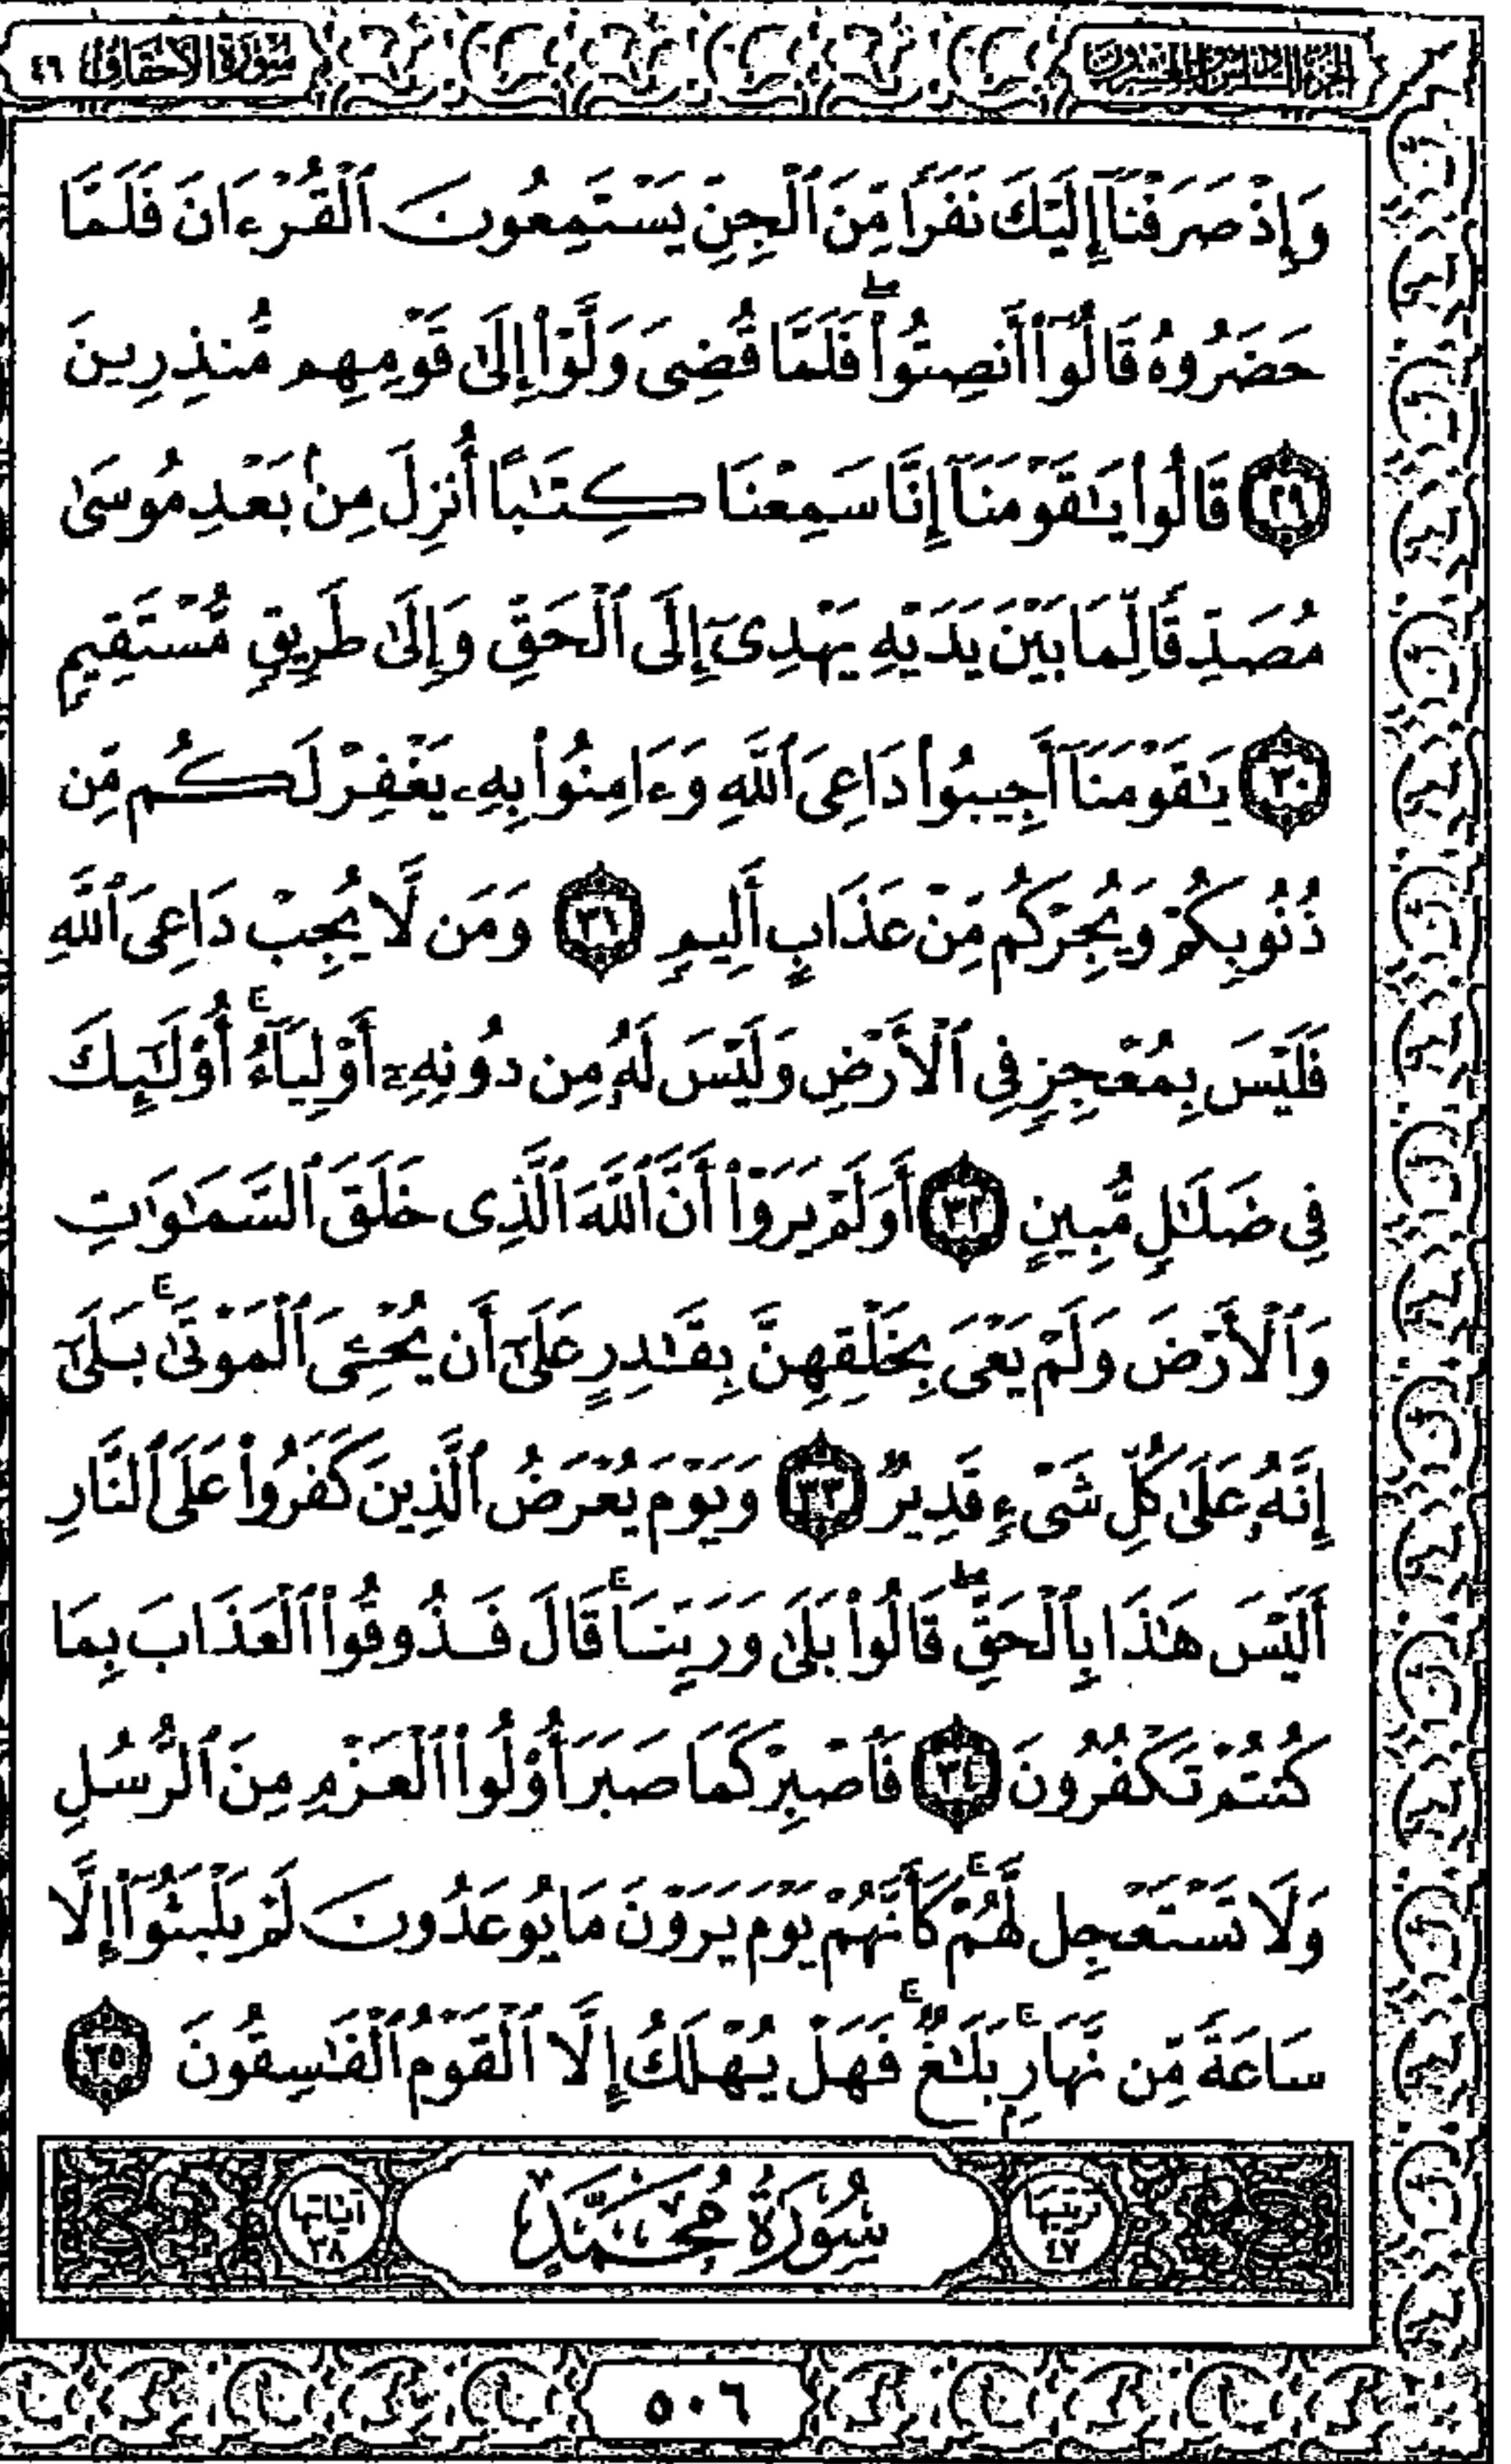 الجزء السادس والعشرون
سورة الأحقاف ٤٦
وَإِذۡ صَرَفۡنَآ إِلَيۡكَ نَفَرٗا مِّنَ ٱلۡجِنِّ يَسۡتَمِعُونَ ٱلۡقُرۡءَانَ فَلَمَّا
حَضَرُوهُ قَالُوٓاْ أَنصِتُواْۖ فَلَمَّا قُضِيَ وَلَّوۡاْ إِلَىٰ قَوۡمِهِم مُّنذِرِينَ
٢٩ قَالُواْ يَٰقَوۡمَنَآ إِنَّا سَمِعۡنَا كِتَٰبًا أُنزِلَ مِنۢ بَعۡدِ مُوسَىٰ
مُصَدِّقٗا لِّمَا بَيۡنَ يَدَيۡهِ يَهۡدِيٓ إِلَى ٱلۡحَقِّ وَإِلَىٰ طَرِيقٖ مُّسۡتَقِيمٖ
٣٠ يَٰقَوۡمَنَآ أَجِيبُواْ دَاعِيَ ٱللَّهِ وَءَامِنُواْ بِهِۦ يَغۡفِرۡ لَكُم مِّن
ذُنُوبِكُمۡ وَيُجِرۡكُم مِّنۡ عَذَابٍ أَلِيمٖ ٣١ وَمَن لَّا يُجِبۡ دَاعِيَ ٱللَّهِ
فَلَيۡسَ بِمُعۡجِزٖ فِي ٱلۡأَرۡضِ وَلَيۡسَ لَهُۥ مِن دُونِهِۦٓ أَوۡلِيَآءُۚ أُوْلَٰٓئِكَ
فِي ضَلَٰلٖ مُّبِينٍ ٣٢ أَوَلَمۡ يَرَوۡاْ أَنَّ ٱللَّهَ ٱلَّذِي خَلَقَ ٱلسَّمَٰوَٰتِ
وَٱلۡأَرۡضَ وَلَمۡ يَعۡيَ بِخَلۡقِهِنَّ بِقَٰدِرٍ عَلَىٰٓ أَن يُحۡـِۧيَ ٱلۡمَوۡتَىٰۚ بَلَىٰٓ
إِنَّهُۥ عَلَىٰ كُلِّ شَيۡءٖ قَدِيرٞ ٣٣ وَيَوۡمَ يُعۡرَضُ ٱلَّذِينَ كَفَرُواْ عَلَى ٱلنَّارِ
أَلَيۡسَ هَٰذَا بِٱلۡحَقِّۖ قَالُواْ بَلَىٰ وَرَبِّنَاۚ قَالَ فَذُوقُواْ ٱلۡعَذَابَ بِمَا
كُنتُمۡ تَكۡفُرُونَ ٣٤ فَٱصۡبِرۡ كَمَا صَبَرَ أُوْلُواْ ٱلۡعَزۡمِ مِنَ ٱلرُّسُلِ
وَلَا تَسۡتَعۡجِل لَّهُمۡۚ كَأَنَّهُمۡ يَوۡمَ يَرَوۡنَ مَا يُوعَدُونَ لَمۡ يَلۡبَثُوٓاْ إِلَّا
سَاعَةٗ مِّن نَّهَارِۭۚ بَلَٰغٞۚ فَهَلۡ يُهۡلَكُ إِلَّا ٱلۡقَوۡمُ ٱلۡفَٰسِقُونَ ٣٥
ترتيبها ٤٧ سُورَةُ مُحَمَّدٍ آياتها ٣٨
٥٠٦